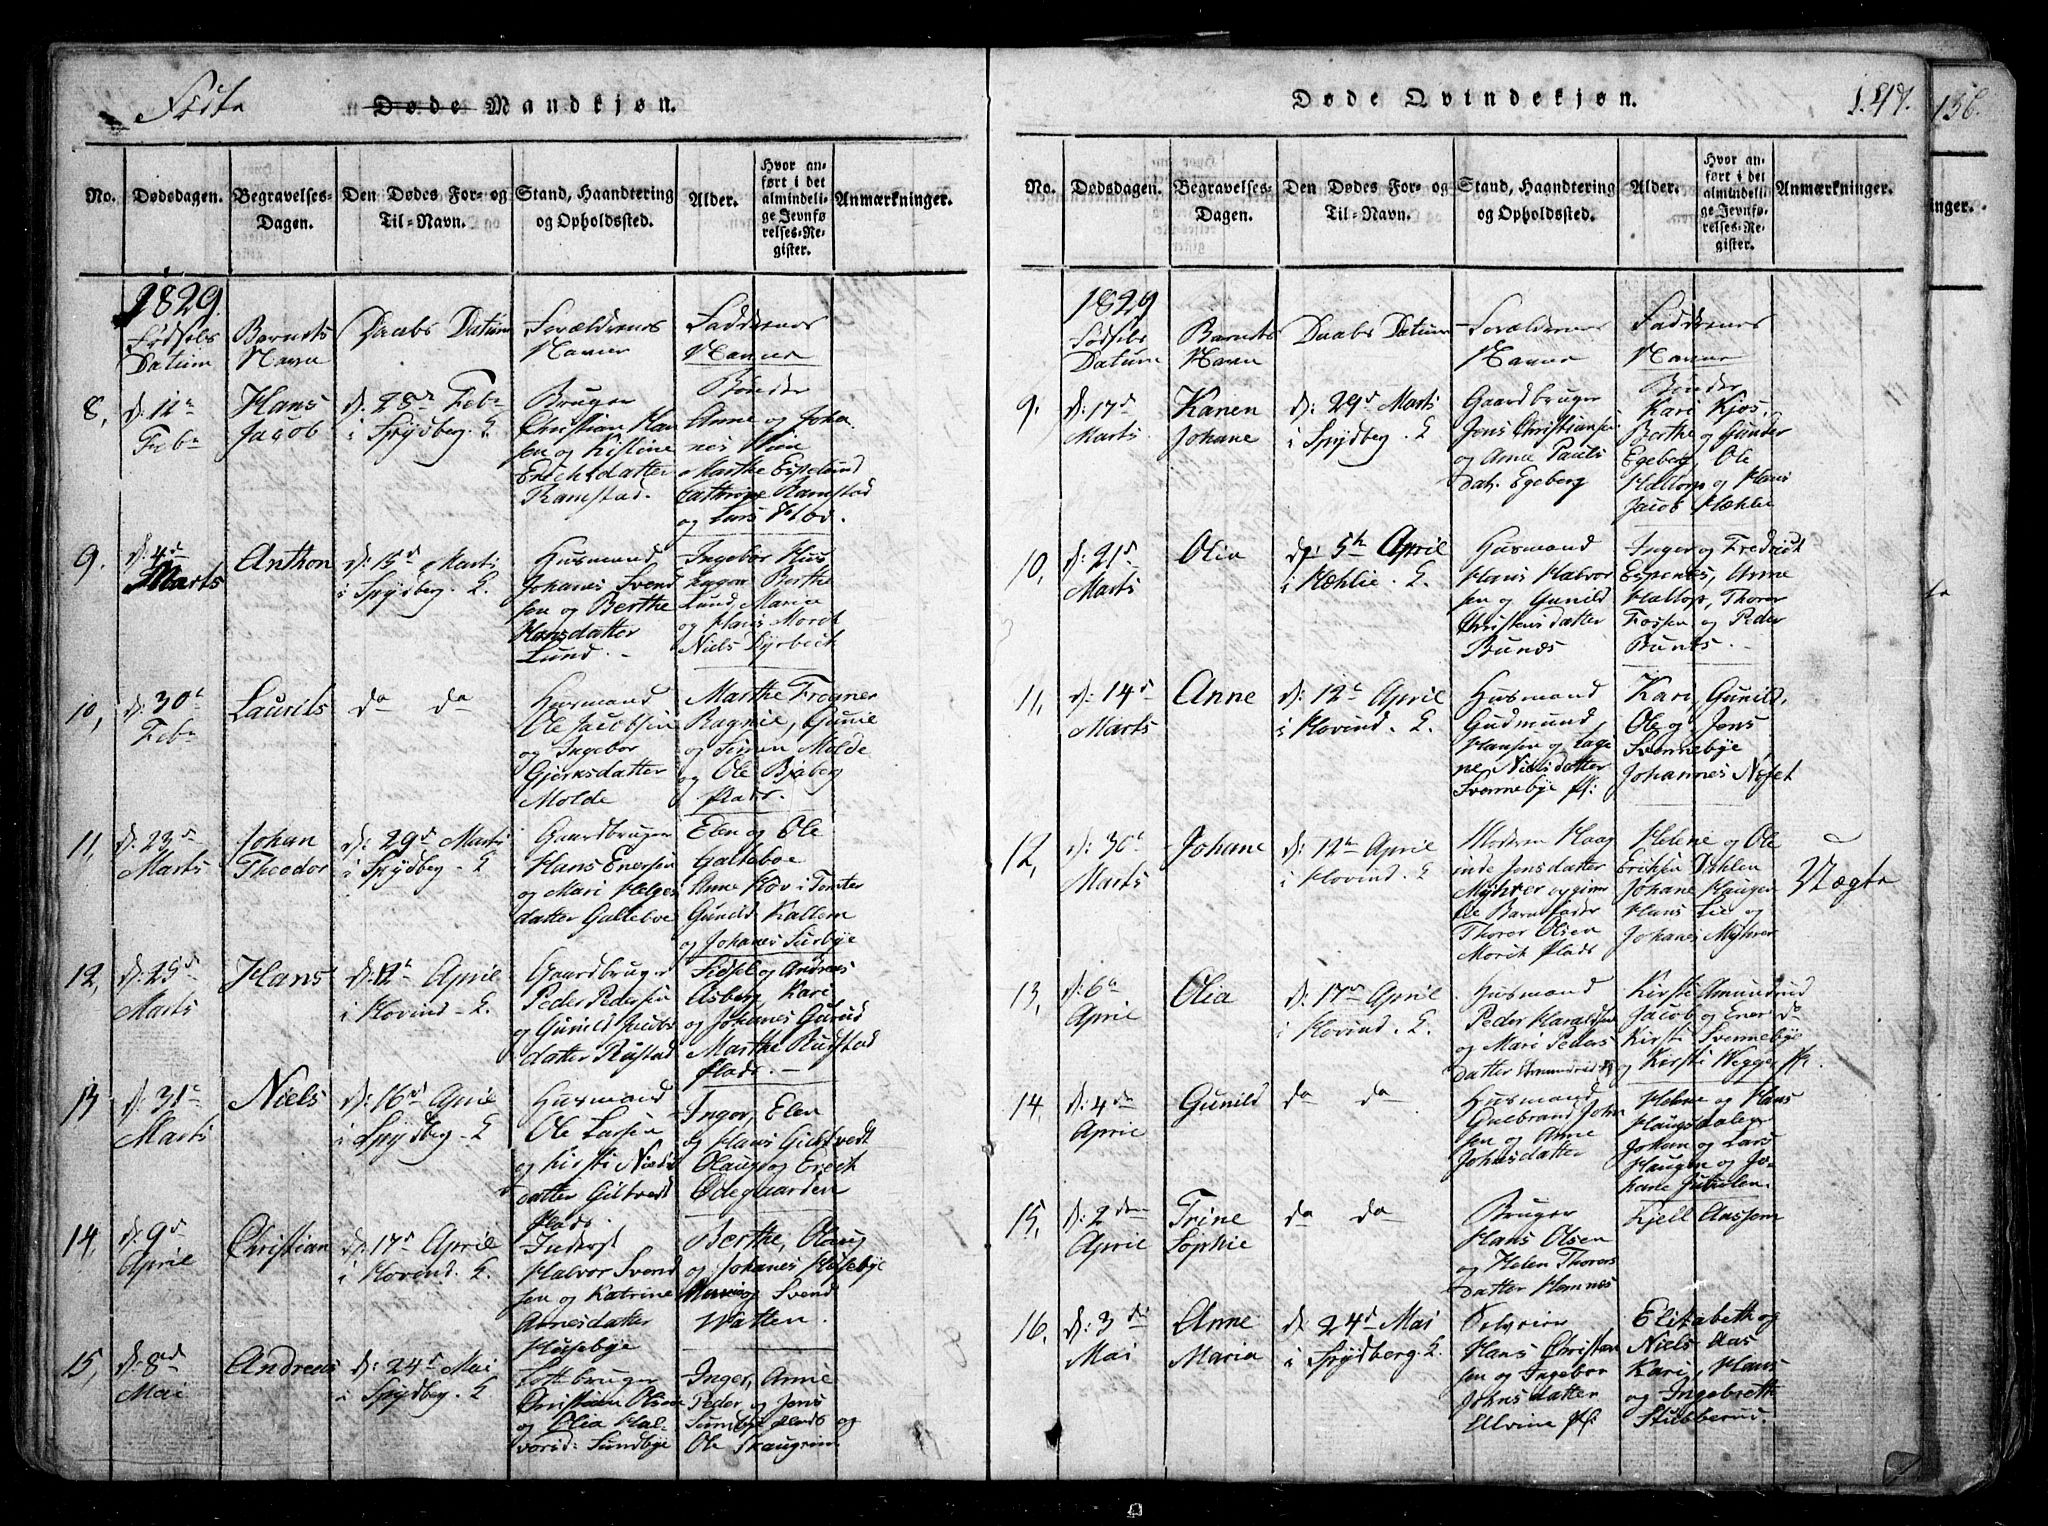 Fødte Døde Mandkjøn.
No.
Dødsdagen.
Begravelses-
Dagen.
Den Dødes For- og
Til-Navn.
Stand, Haandtering
og Opholdssted.
Alder.
Hvor an-
ført i det
almindeli-
ge Jevnfø-
relses-Re-
gister.
Anmærkninger.
1829
Fødsels
Datum
Barnets
Navn
Daabs Datum
Forældrenes
Navne
Faddernes
Navne
8,
d: 11
Feb
Hans
Jacob
d: 28 Feb
i Spydberg. K
Bruger
Christian Han
sen og Kistine
Erichsdatter
Ramstad.
Bønder
Anne og Joha
nes
Marthe Espelund
Cathrine Ramstad
og Lars
9.
d: 4de
Marts
Anthon
d: 15d Marts
i Spydberg. K.
Husmand
Johanes Svend
sen og Berthe
Hansdatter
Lund.
Ingebor Hus
Berthe
Lund, Maria
og Hans
Niels Dyrbech
10,
d: 30
Feb
Laurits
do do
Husmand
Ole Jacobsen
og Ingebor
Gjersdatter
Molde
Marthe Frogner
Ragnie, Gunie
og Simen Molde
og Ole Bjaberg
Plads.
11,
d: 23d
Marts
Johan
Theodor
d: 29d Marts
i Spydberg. K
Gaardbruger
Hans Enersen
og Mari Helges
datter Galteboe
Elen og Ole
Galteboe
Anne Hov i Tomter
Gunild Kallem
og Johanes Surbye
12,
d: 25d
Marts
Hans
d: 12 April
i Hovind. K.
Gaardbruger
Peder Pedersen
og Gunild Jacobs
datter Rustad
Sidsel og Andreas
Asberg Kari
og Johanes Gurud
Marthe Rudstad
plads.
13
d: 31
Marts
Niels
d: 16d April
i Spydberg. K
Husmand
Ole Larsen
og Kirsti Niels
datter Giltvedt
Plads.
Inger, Elen
og Hans Giltvedt
Olaug og Erich
Ødegaarden
14,
d: 9d
April
Christian
d: 17d April
i Hovind. K.
Inderst
Halvor Svend
sen og Katrine
Arnesdatter
Husebye
Berthe, Olaug
og Johanes Husebye
og Svend
Watten.
15,
d: 8d
Mai
Andreas
d: 24d Mai
i Spydberg. K
Christian Olsen
og Olia Hal
vorsd: Sundbye
Inger, Anne
Peder, og Jens
Sundbye plads og
Ole Skaugrim
Døde Qvindekjøn.
147.
No.
Dødsdagen.
Begravelses-
Dagen.
Den Dødes For- og
Til-Navn.
Stand, Haandtering
og Opholdssted.
Alder.
Hvor an-
ført i det
almindeli-
ge Jevnfø-
relses-Re-
gister.
Anmærkninger.
1829
Fødsels
Datum
Barnets
Navn
Daabs Datum
Forældrenes
Navne
Faddernes
Navne
9.
d: 17d
Marts.
Karen
Johane
d: 29d Marts
i Spydberg. K
Gaardbruger
Jens Christiansen
og Anne Pauls
dat. Egeberg
Bønder
Kari Kjos,
Berthe og Gunder
Egeberg, Ole
Haltorp og Hans
Jacob Mæhlie
10,
d: 21d
Marts
Olia
d: 5te April
i Mæhlie. K.
Husmand
Hans Halvor
sen og Gunild
Christensdatter
Bunæs
Inger og Fredrich
Espenes, Anne
Haltorp, Thorer
Fossen og Peder
Bunes.
11,
d: 14d
Marts
Anne
d: 12 April
i Hovind. K.
Husmand
Gudmund
Hansen og
ne Nielsdatter
Svennebye Pl:
Kari, Gunild,
Ole og Jens
Svennebye,
Johannes Nøset
12,
d: 30
Marts
Johane
d: 12 April
i Hovind. K
Moderen Haag
inde Jensdatter
Myhrer og
Barnefader
Thorer Olsen
Plads
Helene og Ole
Erichsen Dahlen
Johane Haugen
Hans Lie og
Johanes Myhrer
Uægte
13,
d: 6
April
Olia
d: 17 April
i Hovind. K.
Husmand
Peder Haraldsen
og Mari Peders
datter Amundrud Pl
Kirsti Amundrud
Jacob og Ener do
Kirsti Svennebye
og Kirsti Wegger Pl.
14
d: 4de
April
Gunild
do do
Husmand
Gulbrand John
sen og Anne
Johnsdatter
Helene og Hans
Haugsdalen
Johan og Lars
Haugen og Jo-
hane
15,
d: 2den
April
Trine
Sophie
do do
Bruger
Hans Olsen
og Helen Thorers
datter Hemnes
Kjell Aassem
16,
d: 3di
Mai
Anne
Maria
d: 24d Mai
i Spydberg. K.
Selveier
Hans Christian
sen og Ingebor
Johnsdatter
Ulvine Pl:
Elisabeth og
Niels Aas
Kari, Hans
og Ingebreth
Stibberud.
156.
inger.